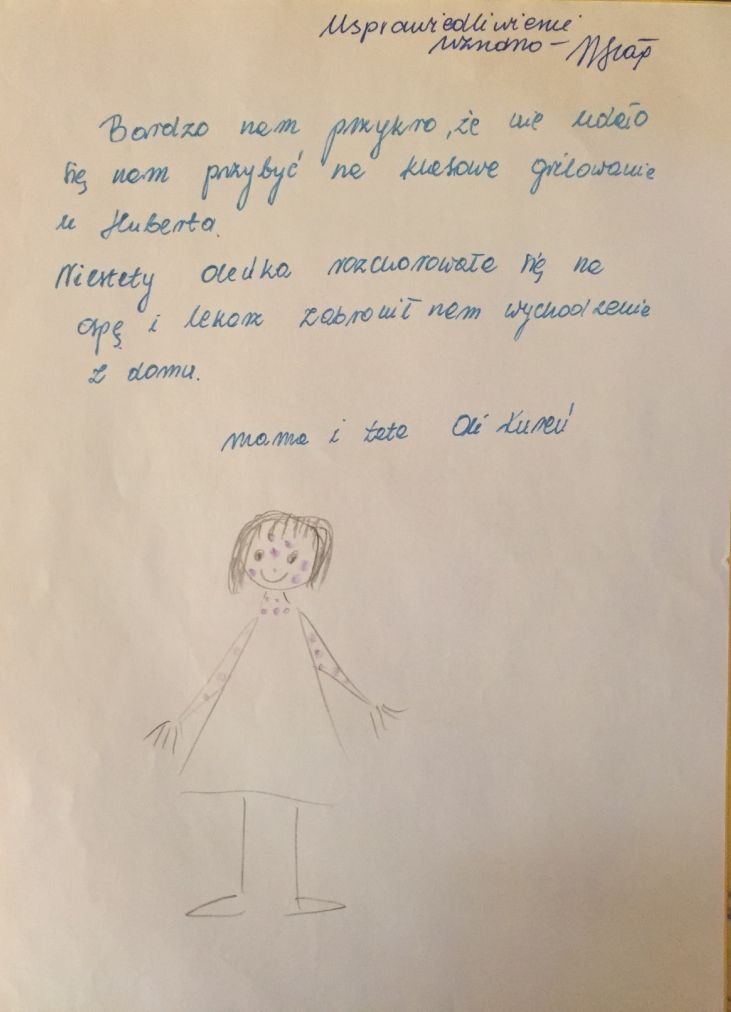 Usprawiedliwienie
uznano -
Bardzo nam przykro, że nie udało
się nam przybyć na klasowe grilowanie
u Huberta.
Niestety Oleńka rozchorowała się na
ospę i lekarz zabronił nam wychodzenie
z domu.
mama i tata Oli